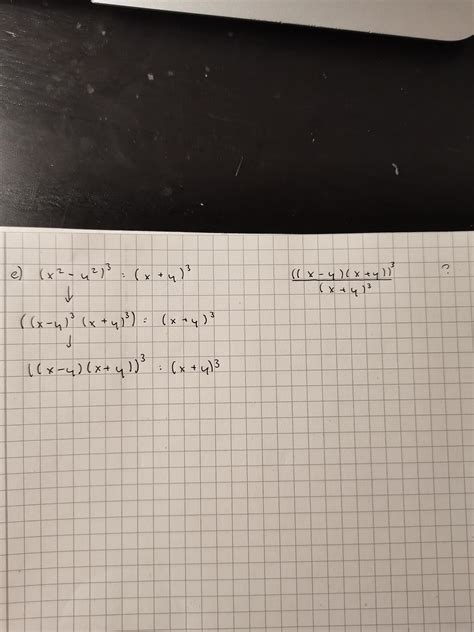 e) (x² - y²)³ : (x + y)³
↓
((x-y)³ (x+y)³) : (x+y)³
↓
((x-y)(x+y))³ : (x+y)³
((x-y)(x+y))³
(x+y)³
?